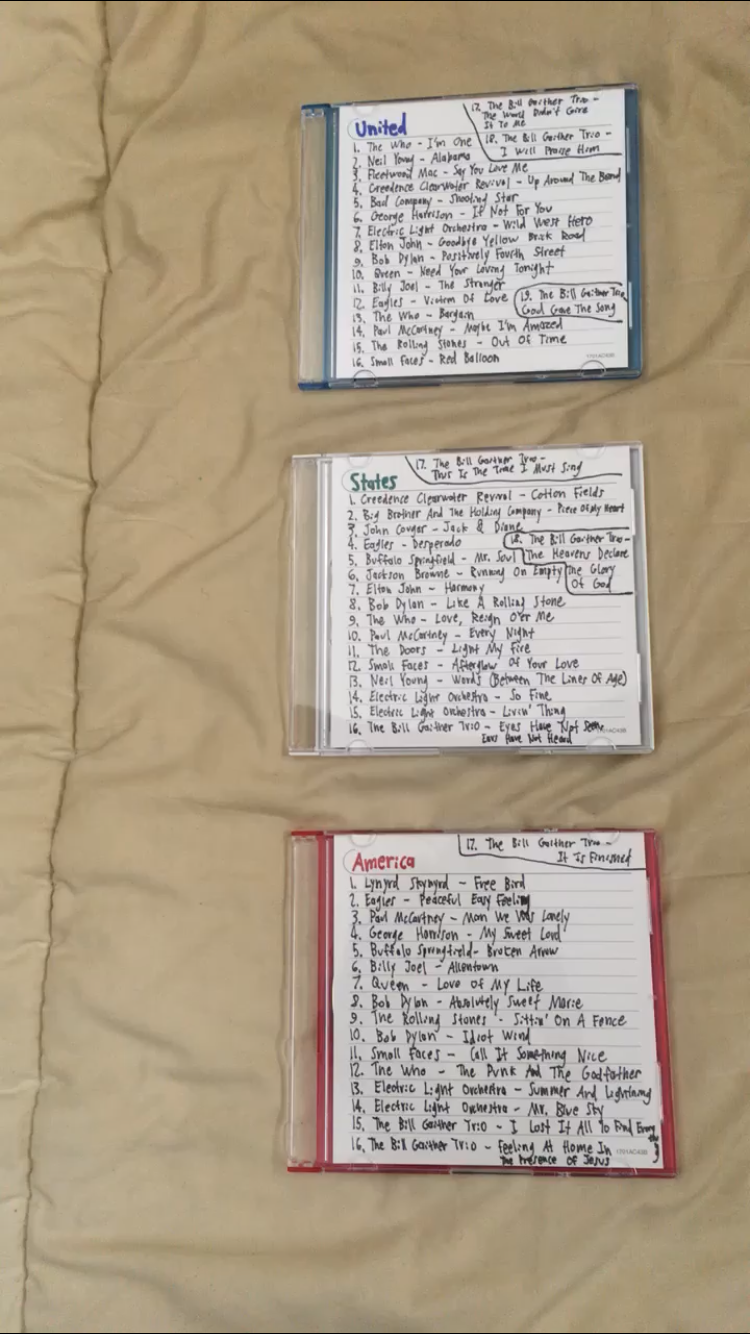 17. The Bill Gaither Trio -
The World Didn't Give
It To Me
United
18. The Bill Gaither Trio -
I Will Praise Him
1. The Who - I'm One
2. Neil Young - Alabama
3. Fleetwood Mac - Say You Love Me
4. Creedence Clearwater Revival - Up Around The Bend
5. Bad Company - Shooting Star
6. George Harrison - If Not For You
7. Electric Light Orchestra - Wild West Hero
8. Elton John - Goodbye Yellow Brick Road
9. Bob Dylan - Positively Fourth Street
10. Queen - Need Your Loving Tonight
11. Billy Joel - The Stranger
12. Eagles - Victim Of Love
19. The Bill Gaither Trio
God Gave The Song
13. The Who - Bargain
14. Paul McCartney - Maybe I'm Amazed
15. The Rolling Stones - Out Of Time
16. Small Faces - Red Balloon
17. The Bill Gaither Trio -
This Is The Time I Must Sing
States
1. Creedence Clearwater Revival - Cotton Fields
2. Big Brother And The Holding Company - Piece Of My Heart
3. John Cougar - Jack & Diane
4. Eagles - Desperado
18. The Bill Gaither Trio -
The Heavens Declare
The Glory
Of God
5. Buffalo Springfield - Mr. Soul
6. Jackson Browne - Running On Empty
7. Elton John - Harmony
8. Bob Dylan - Like A Rolling Stone
9. The Who - Love, Reign O'er Me
10. Paul McCartney - Every Night
11. The Doors - Light My Fire
12. Small Faces - Afterglow Of Your Love
13. Neil Young - Words (Between The Lines Of Age)
14. Electric Light Orchestra - So Fine
15. Electric Light Orchestra - Livin' Thing
16. The Bill Gaither Trio - Eyes Have Not Seen
Ears Have Not Heard
17. The Bill Gaither Trio -
It Is Finished
America
1. Lynyrd Skynyrd - Free Bird
2. Eagles - Peaceful Easy Feeling
3. Paul McCartney - Man We Was Lonely
4. George Harrison - My Sweet Lord
5. Buffalo Springfield - Broken Arrow
6. Billy Joel - Allentown
7. Queen - Love Of My Life
8. Bob Dylan - Absolutely Sweet Marie
9. The Rolling Stones - Sittin' On A Fence
10. Bob Dylan - Idiot Wind
11. Small Faces - Call It Something Nice
12. The Who - The Punk And The Godfather
13. Electric Light Orchestra - Summer And Lightning
14. Electric Light Orchestra - Mr. Blue Sky
15. The Bill Gaither Trio - I Lost It All To Find Everything
16. The Bill Gaither Trio - Feeling At Home In
The Presence Of Jesus